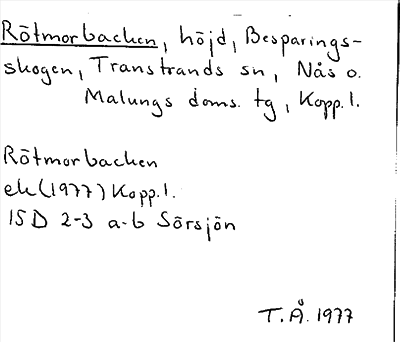 Rötmorbacken, höjd, Besparings-
skogen, Transtrands sn, Nås o.
Malungs doms. tg, Kopp. l.
Rötmorbacken
ek (1977) Kopp. l.
15D 2-3 a-b Sörsjön
T. Å. 1977